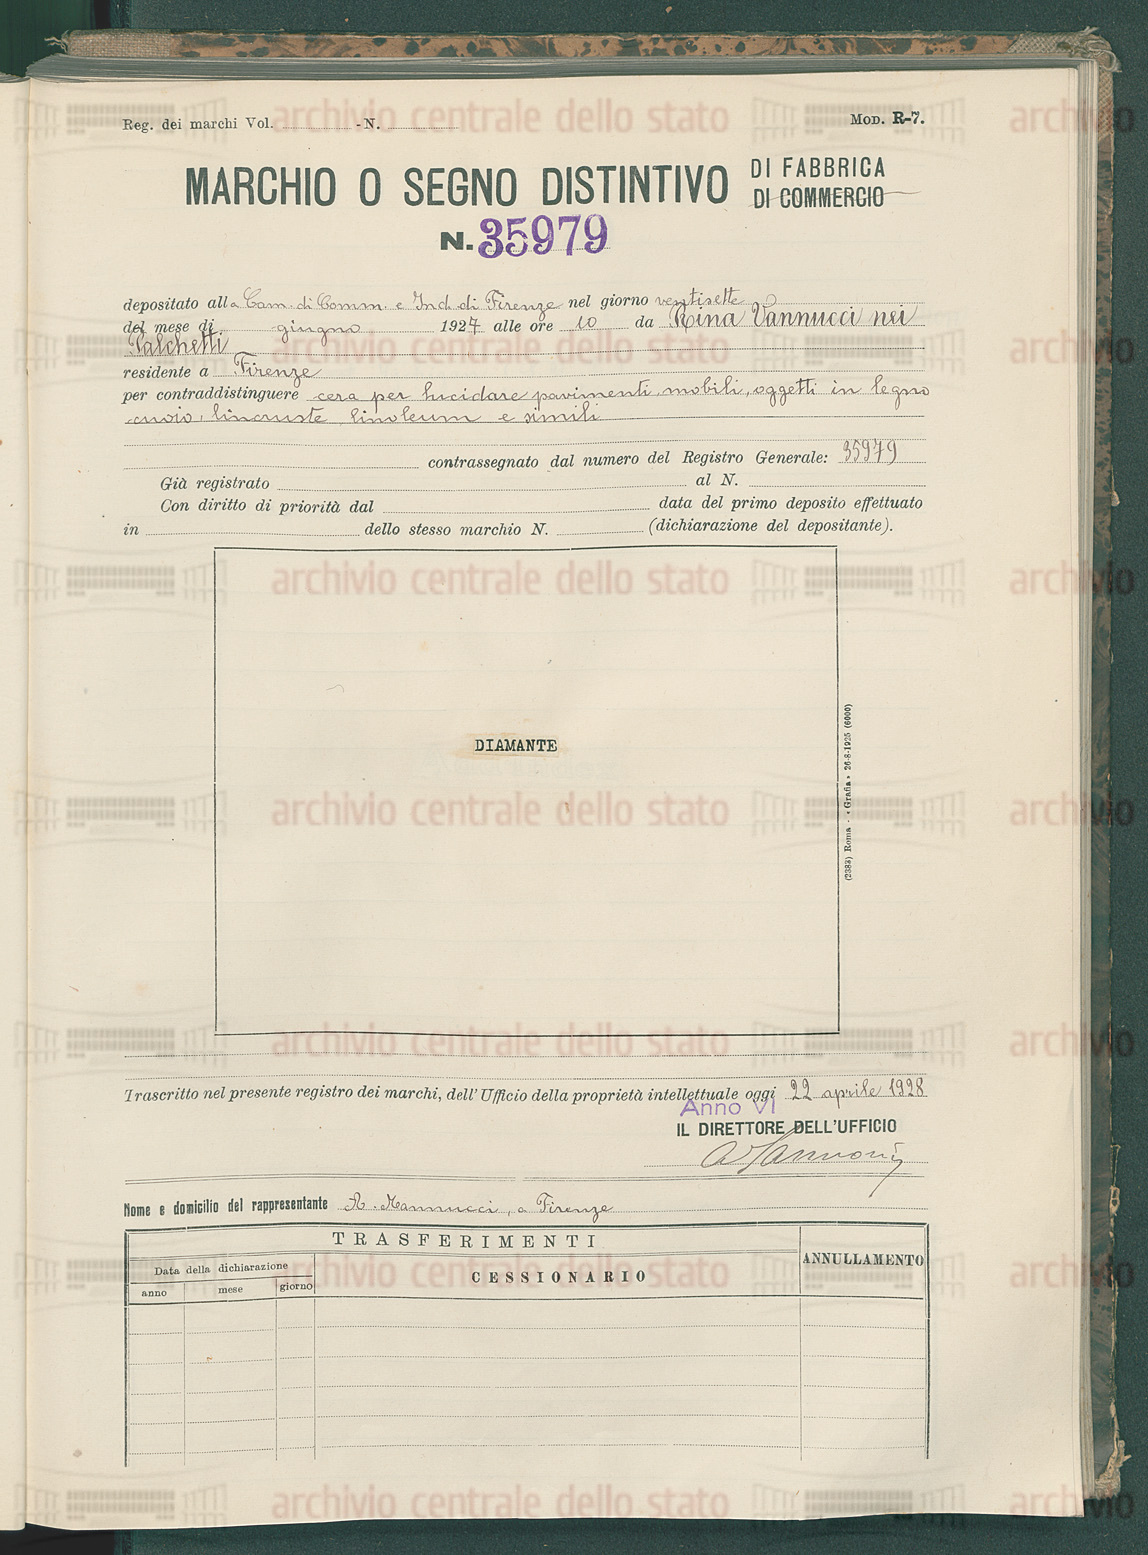 Reg. dei marchi Vol. - N.
Mod. R-7.
MARCHIO O SEGNO DISTINTIVO
DI FABBRICA
DI COMMERCIO
N. 35979
depositato alla Cam. di Comm. e Ind. di Firenze nel giorno ventisette
del mese di giugno 1927 alle ore 10 da Rina Vannucci nei
Palchetti
residente a Firenze
per contraddistinguere cera per lucidare pavimenti, mobili, oggetti in legno
cuoio, lincruste, linoleum e simili
contrassegnato dal numero del Registro Generale: 35979
Già registrato al N.
Con diritto di priorità dal data del primo deposito effettuato
in dello stesso marchio N. (dichiarazione del depositante).
DIAMANTE
(2383) Roma - «Grafia» 26-8-1925 (6000)
Trascritto nel presente registro dei marchi, dell'Ufficio della proprietà intellettuale oggi 22 aprile 1928
Anno VI
IL DIRETTORE DELL'UFFICIO
Nome e domicilio del rappresentante A. Mannucci, a Firenze
TRASFERIMENTI
ANNULLAMENTO
Data della dichiarazione
CESSIONARIO
anno mese giorno
archivio centrale dello stato